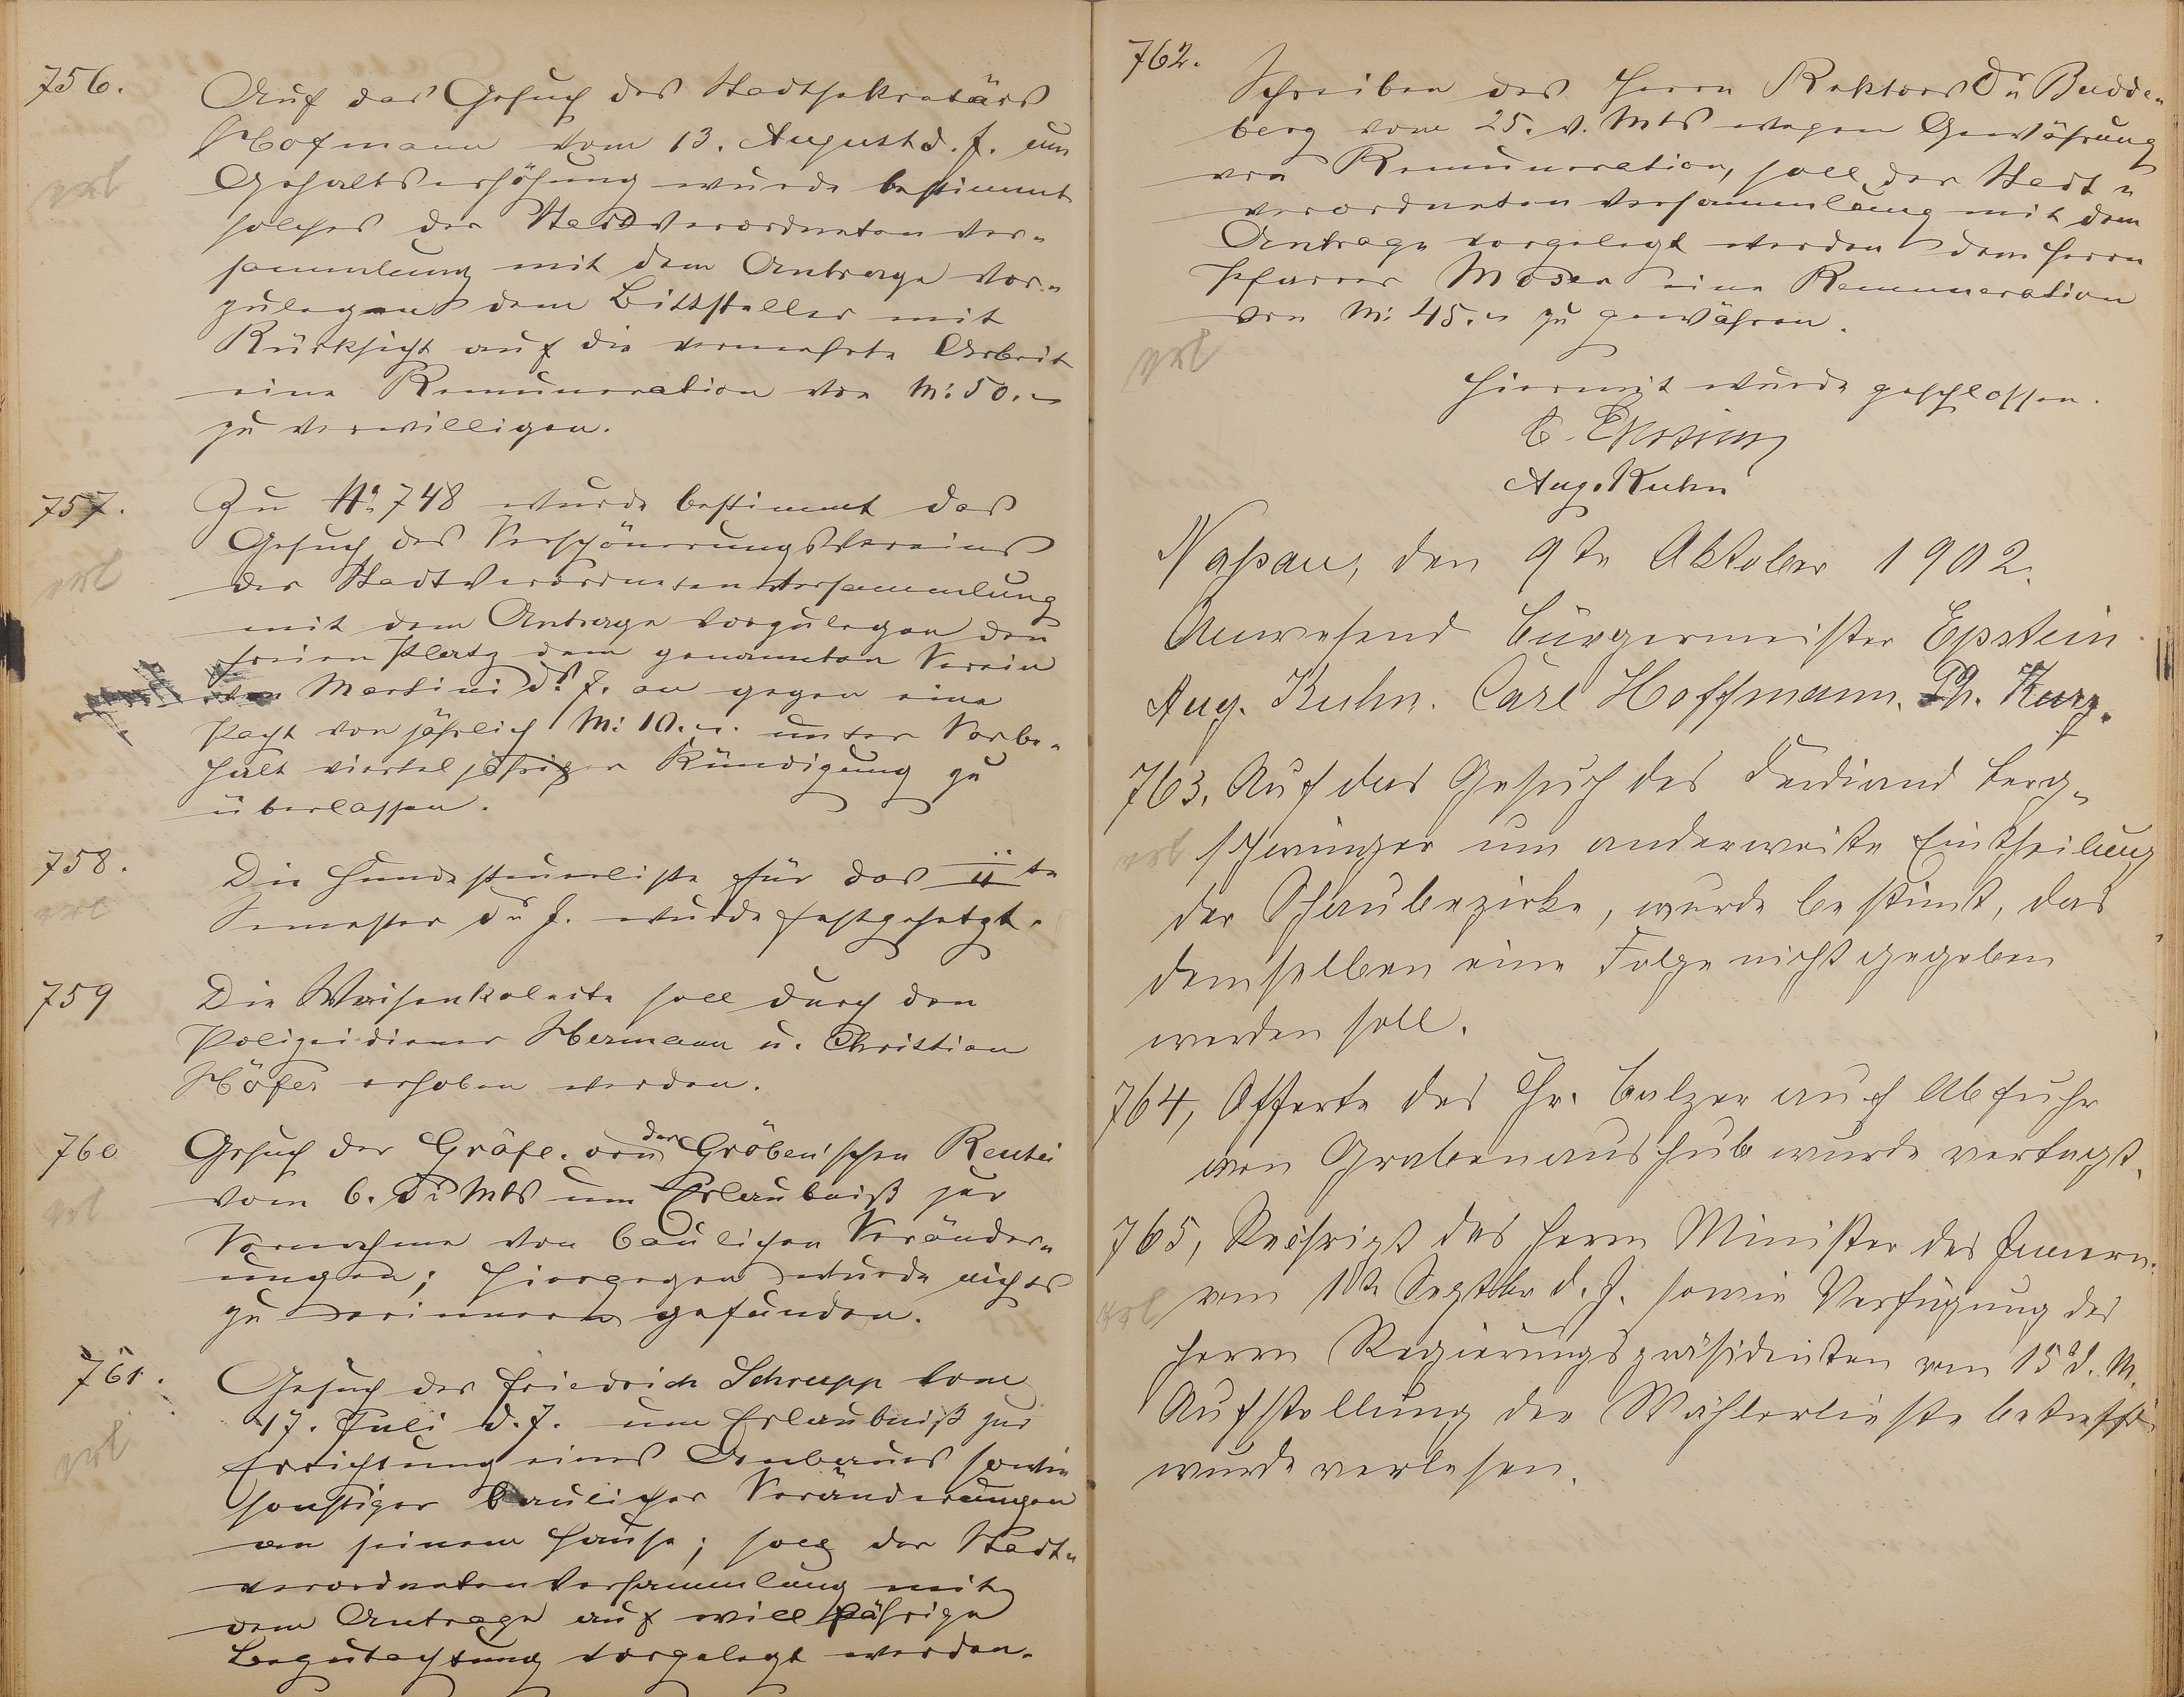 756.
Auf das Gesuch des Stadtsekretärs
Hofmann vom 13. August d. J. um
Gehaltserhöhung wurde bestimmt
solches der Stadtverordneten Ver-
sammlung mit dem Antrage vor-
zulegen dem Bittsteller mit
Rücksicht auf die vermehrte Arbeit
eine Remuneration von M: 50.-
zu verwilligen.
757.
Zu No 748 wurde bestimmt das
Gesuch des Verschönerungsvereins
der Stadtverordneten Versammlung
mit dem Antrage vorzulegen den
freien Platz dem genannten Verein
von Martini ds. J. an gegen eine
Pacht von jährlich M: 10.-. unter Vorbe-
halt vierteljähriger Kündigung zu
überlassen.
758.
Die Hundesteuerliste für das II te
Semester ds J. wurde festgesetzt.
759
Die Waisenkolecte soll durch den
Polizeidiener Hermann u. Christian
Höfer erhoben werden.
760
Gesuch der Gräfl. von der Gröben'schen Rentei
vom 6. ds Mts um Erlaubniß zur
Vornahme von baulichen Veränder-
ungen; hiergegen wurde nichts
zu erinnern gefunden.
761.
Gesuch des Friedrich Schrupp vom
17. Juli d. J. um Erlaubniß zur
Errichtung eines Anbaues sowie
sonstiger baulicher Veränderungen
an seinem Hause; soll der Stadt-
verordneten Versammlung mit
dem Antrage auf willfährige
Begutachtung vorgelegt werden.
762.
Schreiben des Herrn Rektors Dr Budde-
berg vom 25. v. Mts wegen Gewährung
von Remuneration, soll der Stadt-
verordneten Versammlung mit dem
Antrage vorgelegt werden dem Herrn
Pfarrer Moser eine Remuneration
von M: 45.- zu gewähren.
Hiermit wurde geschlossen.
Aug. Kuhn
Nassau, den 9te Oktober 1902.
Anwesend Bürgermeister Epstein
Aug. Kuhn. Carl Hoffmann. Ph. Kurz.
763. Auf das Gesuch des Ferdinand Berg-
schwinger um anderweite Eintheilung
der Schaubezirke, wurde bestimt, das
demselben eine Folge nicht gegeben
werden soll.
764, Offerte des Chr. Balzer auf Abfuhr
von Grabenaushub wurde vertagt.
765, Reskript des Herrn Minister des Innern
vom Septbr d. J. sowie Verfügung des
Herrn Regierungspräsidenten vom 15 d. M.
Aufstellung der Wählerlieste betreffd
wurde verlesen.